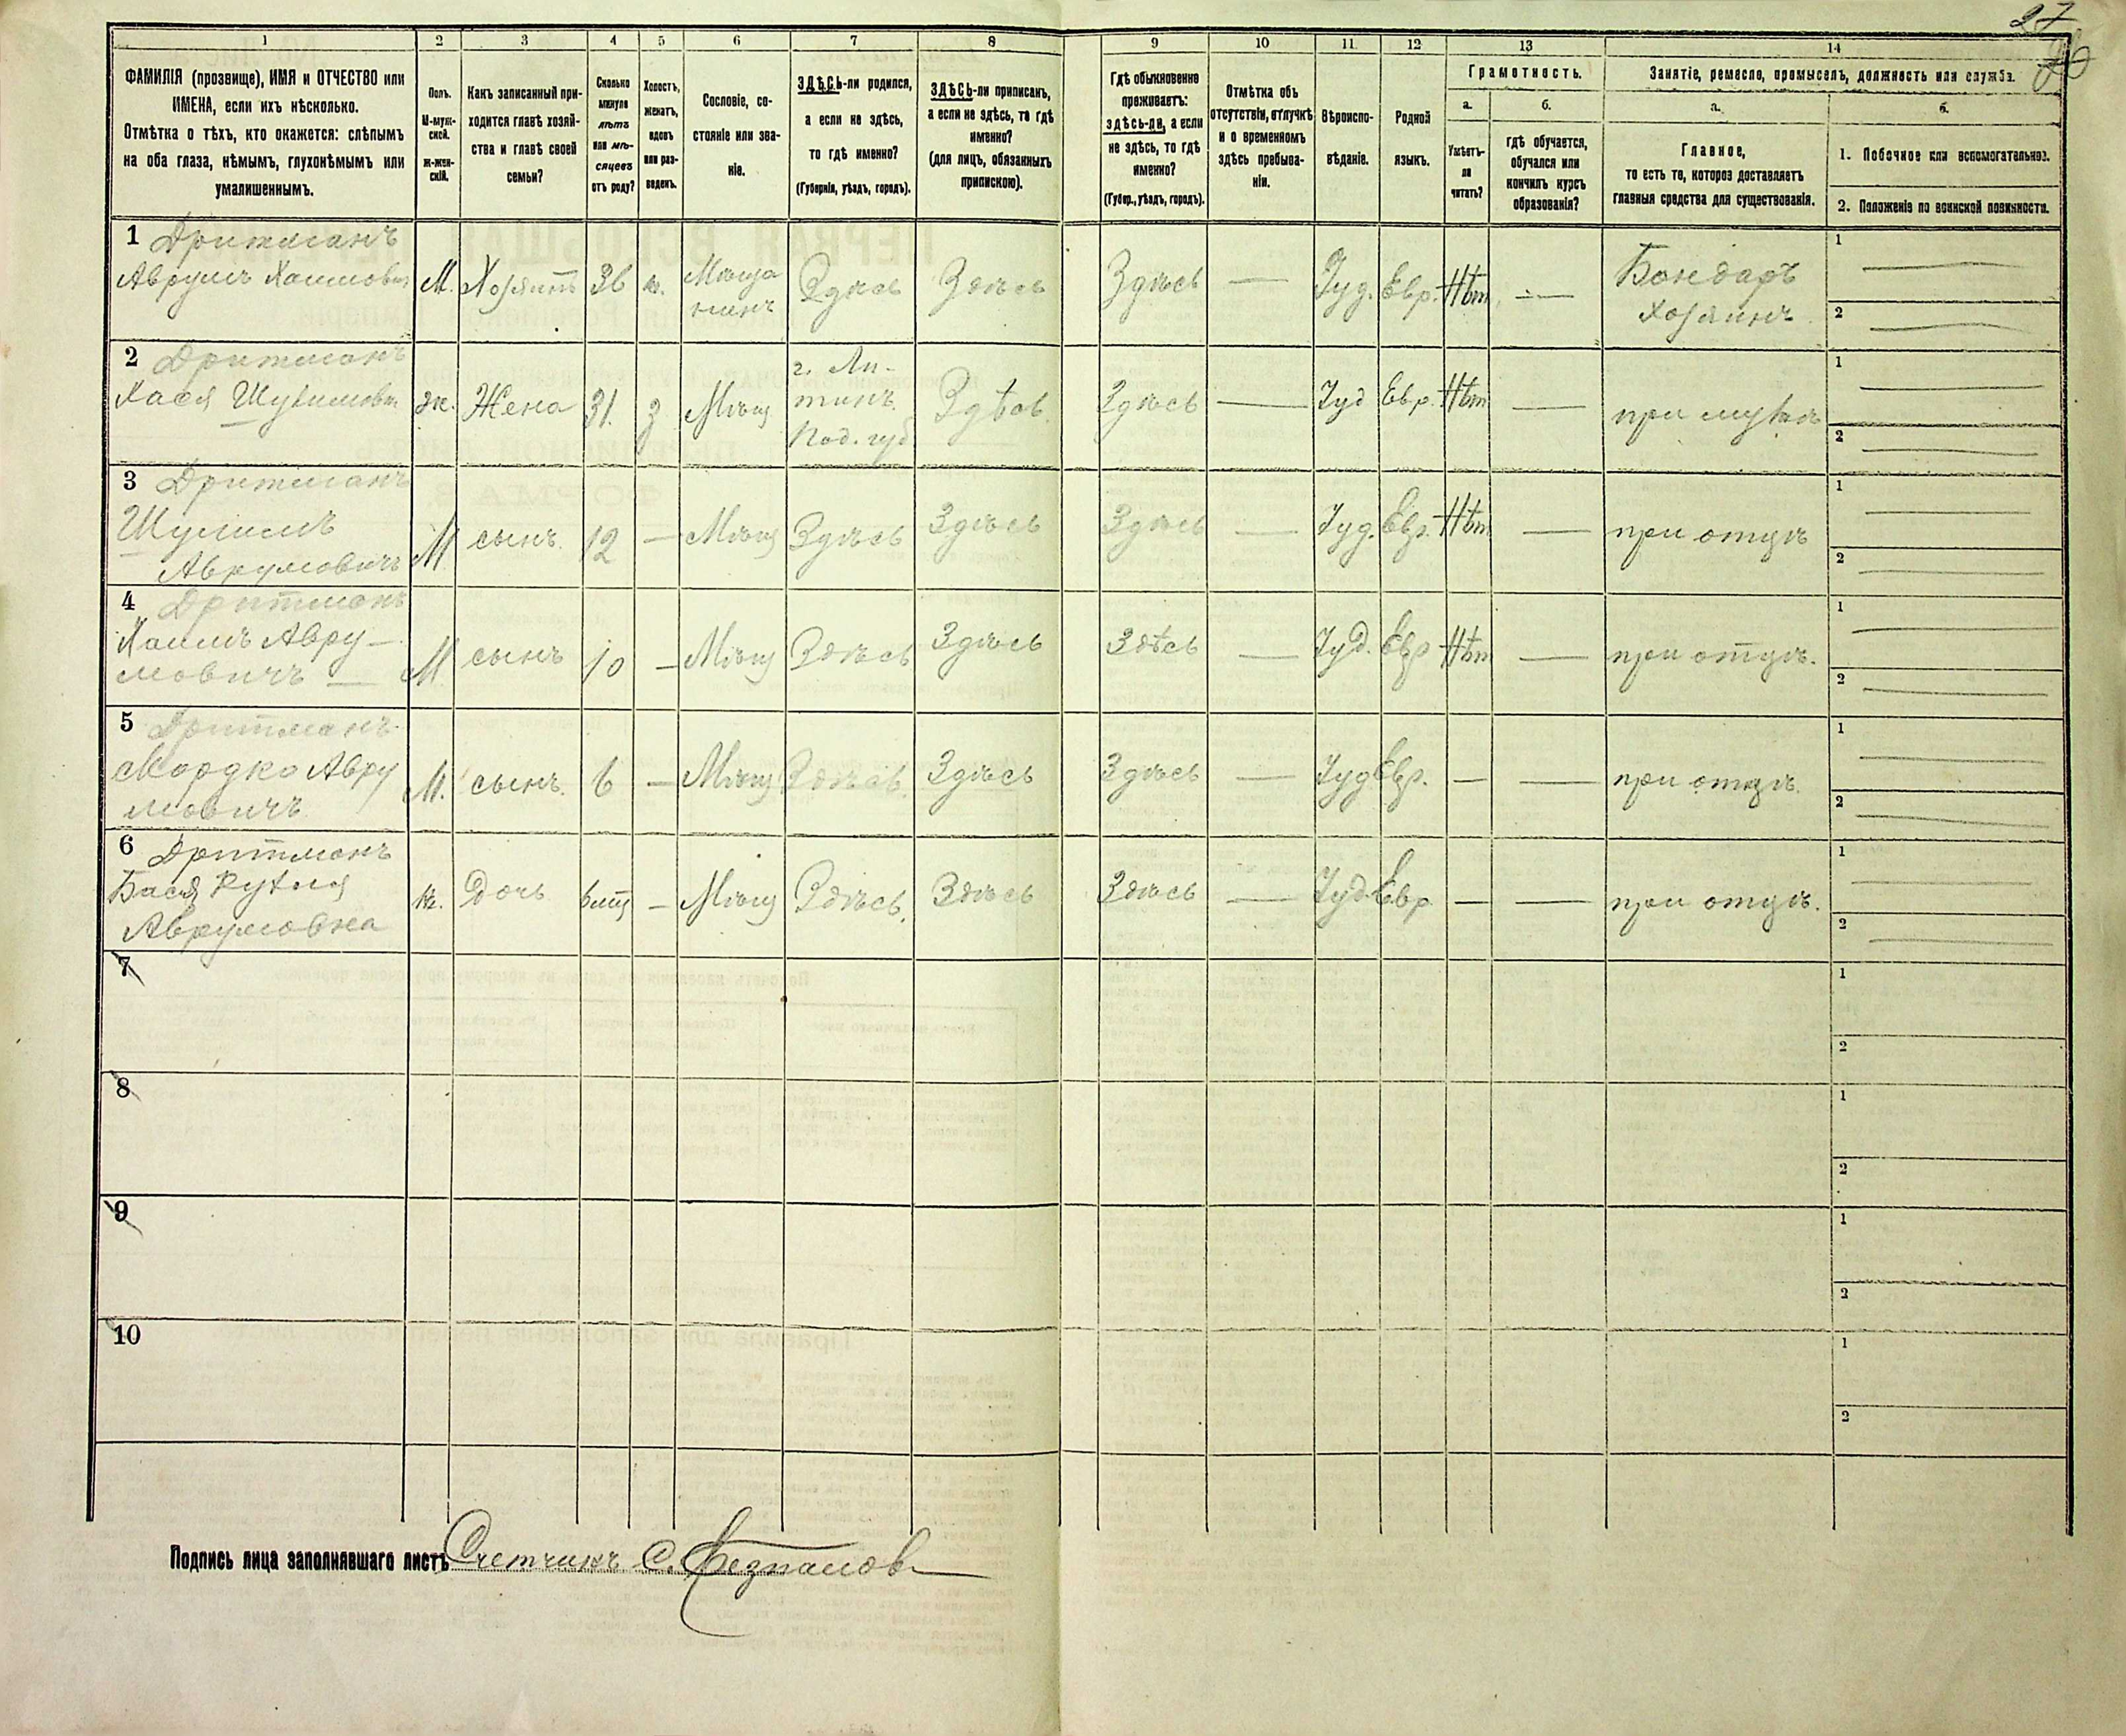 27
26
1
2
3
4
5
6
7
8
9
10
11
12
13
14
ФАМИЛІЯ (прозвище), ИМЯ и ОТЧЕСТВО или
ИМЕНА, если ихъ нѣсколько.
Отмѣтка о тѣхъ, кто окажется: слѣпымъ
на оба глаза, нѣмымъ, глухонѣмымъ или
умалишеннымъ.
Полъ.
М-муж-
ской.
Ж-жен-
скій.
Какъ записанный при-
ходится главѣ хозяй-
ства и главѣ своей
семьи?
Сколько
минуло
лѣтъ
или мѣ-
сяцевъ
отъ роду?
Холостъ,
женатъ,
вдовъ
или раз-
веденъ.
Сословіе, со-
стояніе или зва-
ніе.
ЗДѢСЬ-ли родился,
а если не здѣсь,
то гдѣ именно?
(Губернія, уѣздъ, городъ).
ЗДѢСЬ-ли приписанъ,
а если не здѣсь, то гдѣ
именно?
(для лицъ, обязанныхъ
припискою).
Гдѣ обыкновенно
проживаетъ:
здѣсь-ли, а если
не здѣсь, то гдѣ
именно?
(Губер., уѣздъ, городъ).
Отмѣтка объ
отсутствіи, отлучкѣ
и о временномъ
здѣсь пребыва-
ніи.
Вѣроиспо-
вѣданіе.
Родной
языкъ.
Грамотность.
а.
Умѣетъ-
ли
читать?
б.
гдѣ обучается,
обучался или
кончилъ курсъ
образованія?
Занятіе, ремесло, промыселъ, должность или служба.
а.
Главное,
то есть то, которое доставляетъ
главныя средства для существованія.
б.
1. Побочное или вспомогательное.
2. Положеніе по воинской повинности.
1 Дритманъ
Аврумъ Хаимович
М. Хозяинъ 36 ж. Мѣща
нинъ
Здѣсь Здѣсь Здѣсь — Іуд. Евр. Нѣт —
Бондарь
Хозяинъ
1 —
2 —
2 Дритманъ
Хася Шулимовн
Ж. Жена 31. З Мѣщ
г. Ли-
тинъ
Под. губ.
Здѣсь. Здѣсь — Іуд Евр. Нѣт — при мужѣ
1 —
2 —
3 Дритманъ
Шулимъ
Аврумовичъ
М сынъ. 12 — Мѣщ Здѣсь Здѣсь Здѣсь — Іуд. Евр. Нѣт — при отцѣ
1 —
2 —
4 Дритманъ
Хаимъ Авру—
мовичъ —
М сынъ 10 — Мѣщ Здѣсь Здѣсь Здѣсь — Іуд. Евр Нѣт — при отцѣ.
1 —
2 —
5 Дритманъ
Мордко Авру
мовичъ
М. сынъ. 6 — Мѣщ Здѣсь. Здѣсь Здѣсь — Іуд Евр. — — при отцѣ.
1 —
2 —
6 Дритманъ
Бася Рухля
Аврумовна
ж. Дочь 6 мц — Мѣщ Здѣсь. Здѣсь Здѣсь — Іуд. Евр — — при отцѣ.
1 —
2 —
7
1
2
8
1
2
9
1
2
10
1
2
Подпись лица заполнявшаго листъ Счетчикъ С.